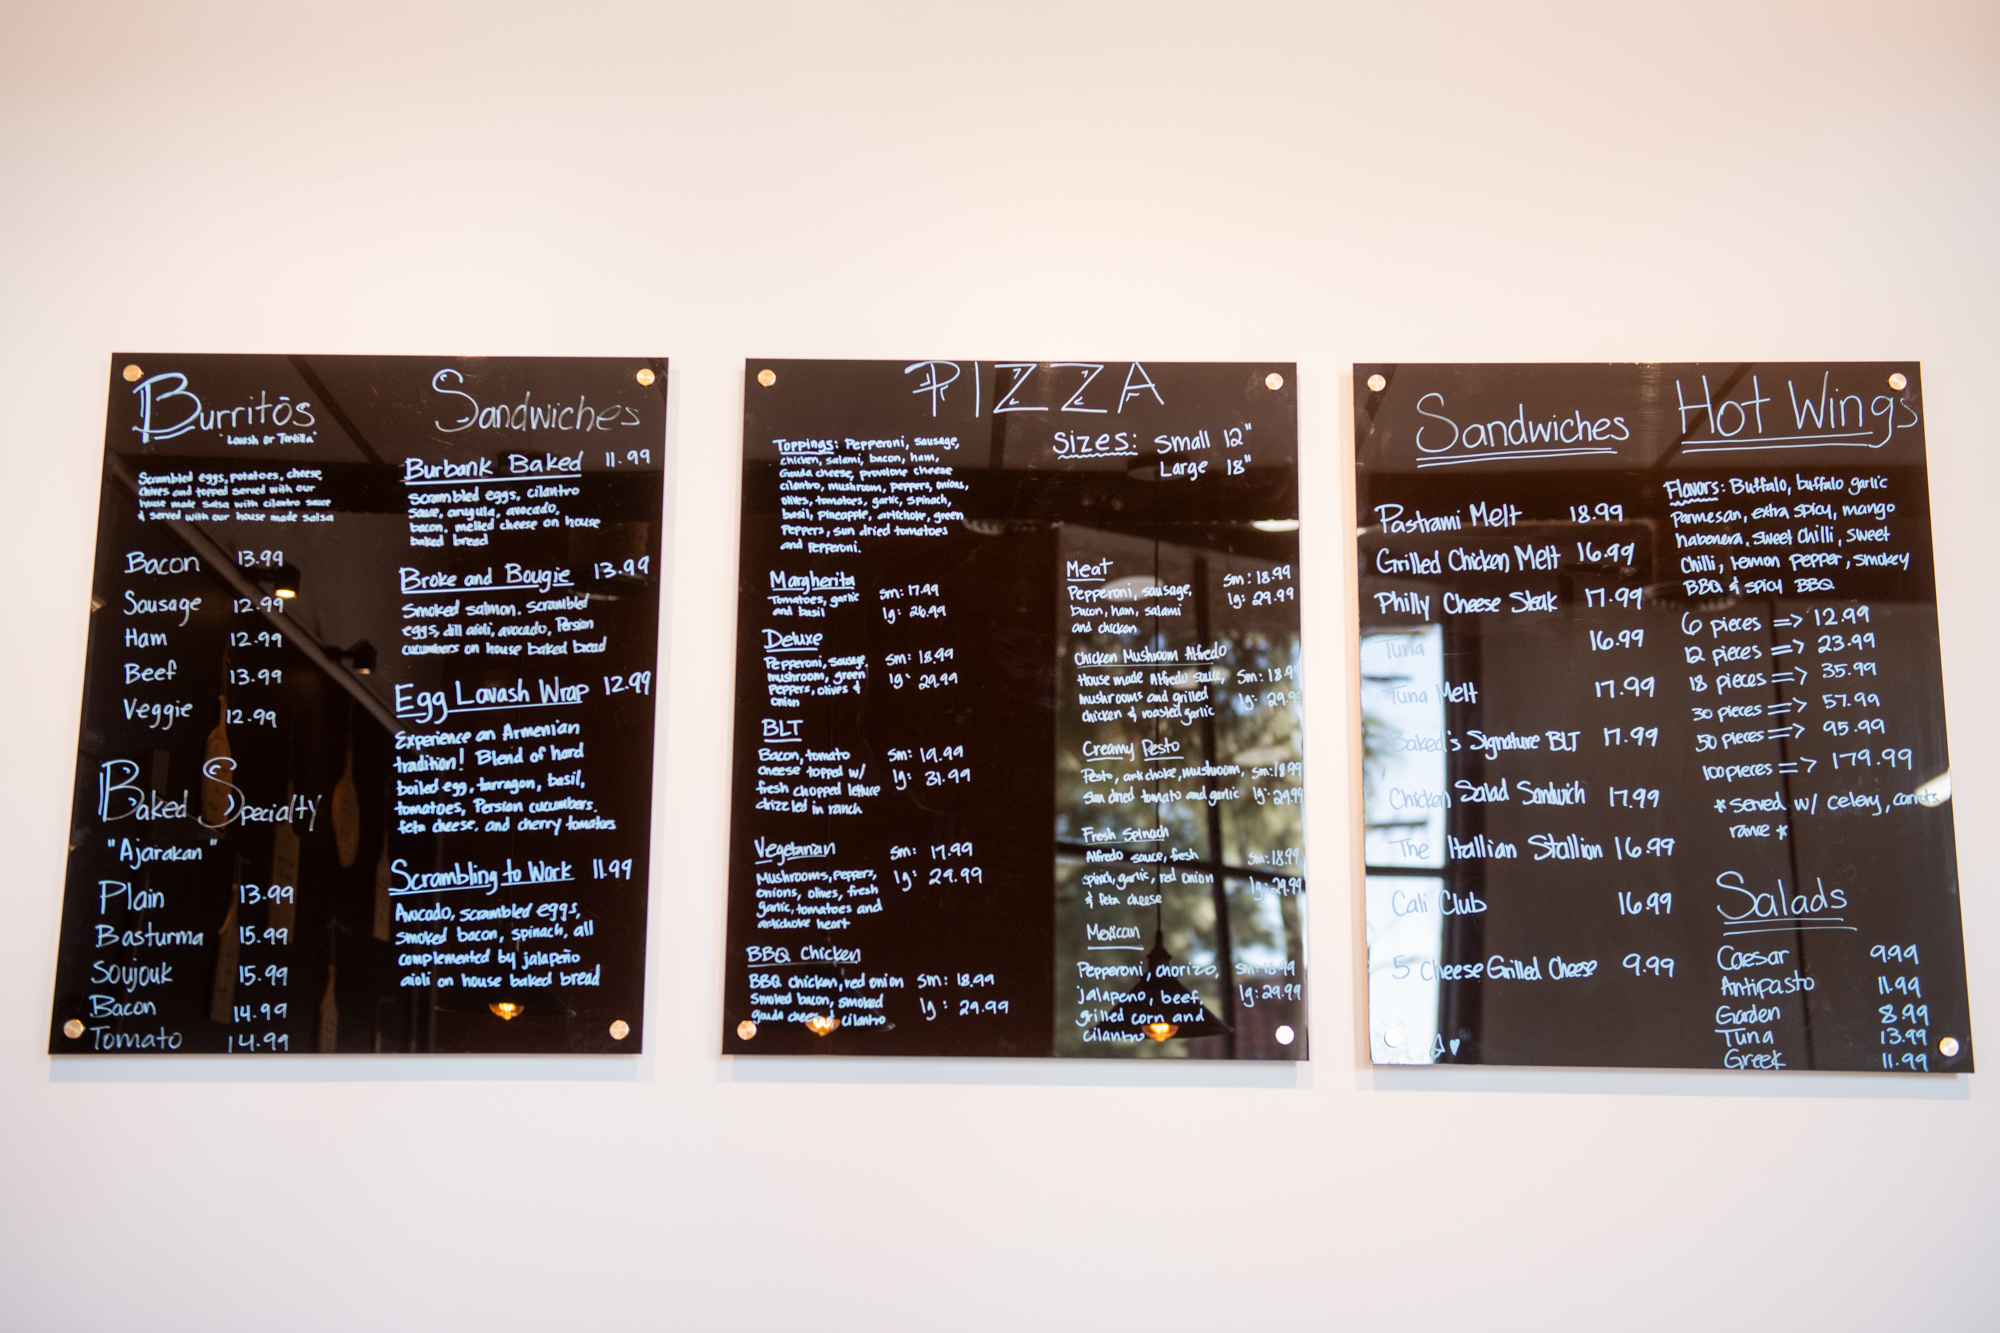 Burritos
"Lavash or Tortilla"
Scrambled eggs, potatoes, cheese,
chives and topped served with our
house made salsa with cilantro sauce
& served with our house made salsa
Bacon 13.99
Sausage 12.99
Ham 12.99
Beef 13.99
Veggie 12.99
Baked Specialty
"Ajarakan"
Plain 13.99
Basturma 15.99
Soujouk 15.99
Bacon 14.99
Tomato 14.99
Sandwiches
Burbank Baked 11.99
Scrambled eggs, cilantro
sauce, arugula, avocado,
bacon, melted cheese on house
baked bread
Broke and Bougie 13.99
Smoked salmon, scrambled
eggs, dill aioli, avocado, Persian
cucumbers on house baked bread
Egg Lavash Wrap 12.99
Experience an Armenian
tradition! Blend of hard
boiled egg, tarragon, basil,
tomatoes, Persian cucumbers,
feta cheese, and cherry tomatoes
Scrambling to Work 11.99
Avocado, scrambled eggs,
smoked bacon, spinach, all
complemented by jalapeño
aioli on house baked bread
PIZZA
Toppings: Pepperoni, sausage,
chicken, salami, bacon, ham,
Gouda cheese, provolone cheese
cilantro, mushroom, peppers, onions,
olives, tomatoes, garlic, spinach,
basil, pineapple, artichoke, green
peppers, sun dried tomatoes
and pepperoni.
Sizes: Small 12"
Large 18"
Margherita
Tomatoes, garlic sm: 17.99
and basil lg: 26.99
Deluxe
Pepperoni, sausage, sm: 18.99
mushroom, green lg: 29.99
peppers, olives &
onion
BLT
Bacon, tomato sm: 19.99
cheese topped w/ lg: 31.99
fresh chopped lettuce
drizzled in ranch
Vegetarian sm: 17.99
Mushrooms, peppers, lg: 29.99
onions, olives, fresh
garlic, tomatoes and
artichoke heart
BBQ Chicken
BBQ chicken, red onion sm: 18.99
smoked bacon, smoked lg: 29.99
gouda cheese & cilantro
Meat
Pepperoni, sausage, sm: 18.99
bacon, ham, salami lg: 29.99
and chicken
Chicken Mushroom Alfredo
House made Alfredo sauce, sm: 18.9
mushrooms and grilled lg: 29.99
chicken & roasted garlic
Creamy Pesto
Pesto, artichoke, mushroom, sm: 18.99
sun dried tomato and garlic lg: 29.99
Fresh Spinach
Alfredo sauce, fresh sm: 18.99
spinch, garlic, red onion lg: 29.99
& feta cheese
Mexican
Pepperoni, chorizo, sm: 18.99
jalapeno, beef, lg: 29.99
grilled corn and
cilantro
Sandwiches
Pastrami Melt 18.99
Grilled Chicken Melt 16.99
Philly Cheese Steak 17.99
Tuna 16.99
Tuna Melt 17.99
Baked's Signature BLT 17.99
Chicken Salad Sandwich 17.99
The Itallian Stallion 16.99
Cali Club 16.99
5 Cheese Grilled Cheese 9.99
Hot Wings
Flavors: Buffalo, buffalo garlic
Parmesan, extra spicy, mango
habenera, sweet chilli, sweet
chilli, lemon pepper, smokey
BBQ & spicy BBQ
6 pieces => 12.99
12 pieces => 23.99
18 pieces => 35.99
30 pieces => 57.99
50 pieces => 95.99
100 pieces => 179.99
*served w/ celery, carrots
rance *
Salads
Caesar 9.99
Antipasto 11.99
Garden 8.99
Tuna 13.99
Greek 11.99